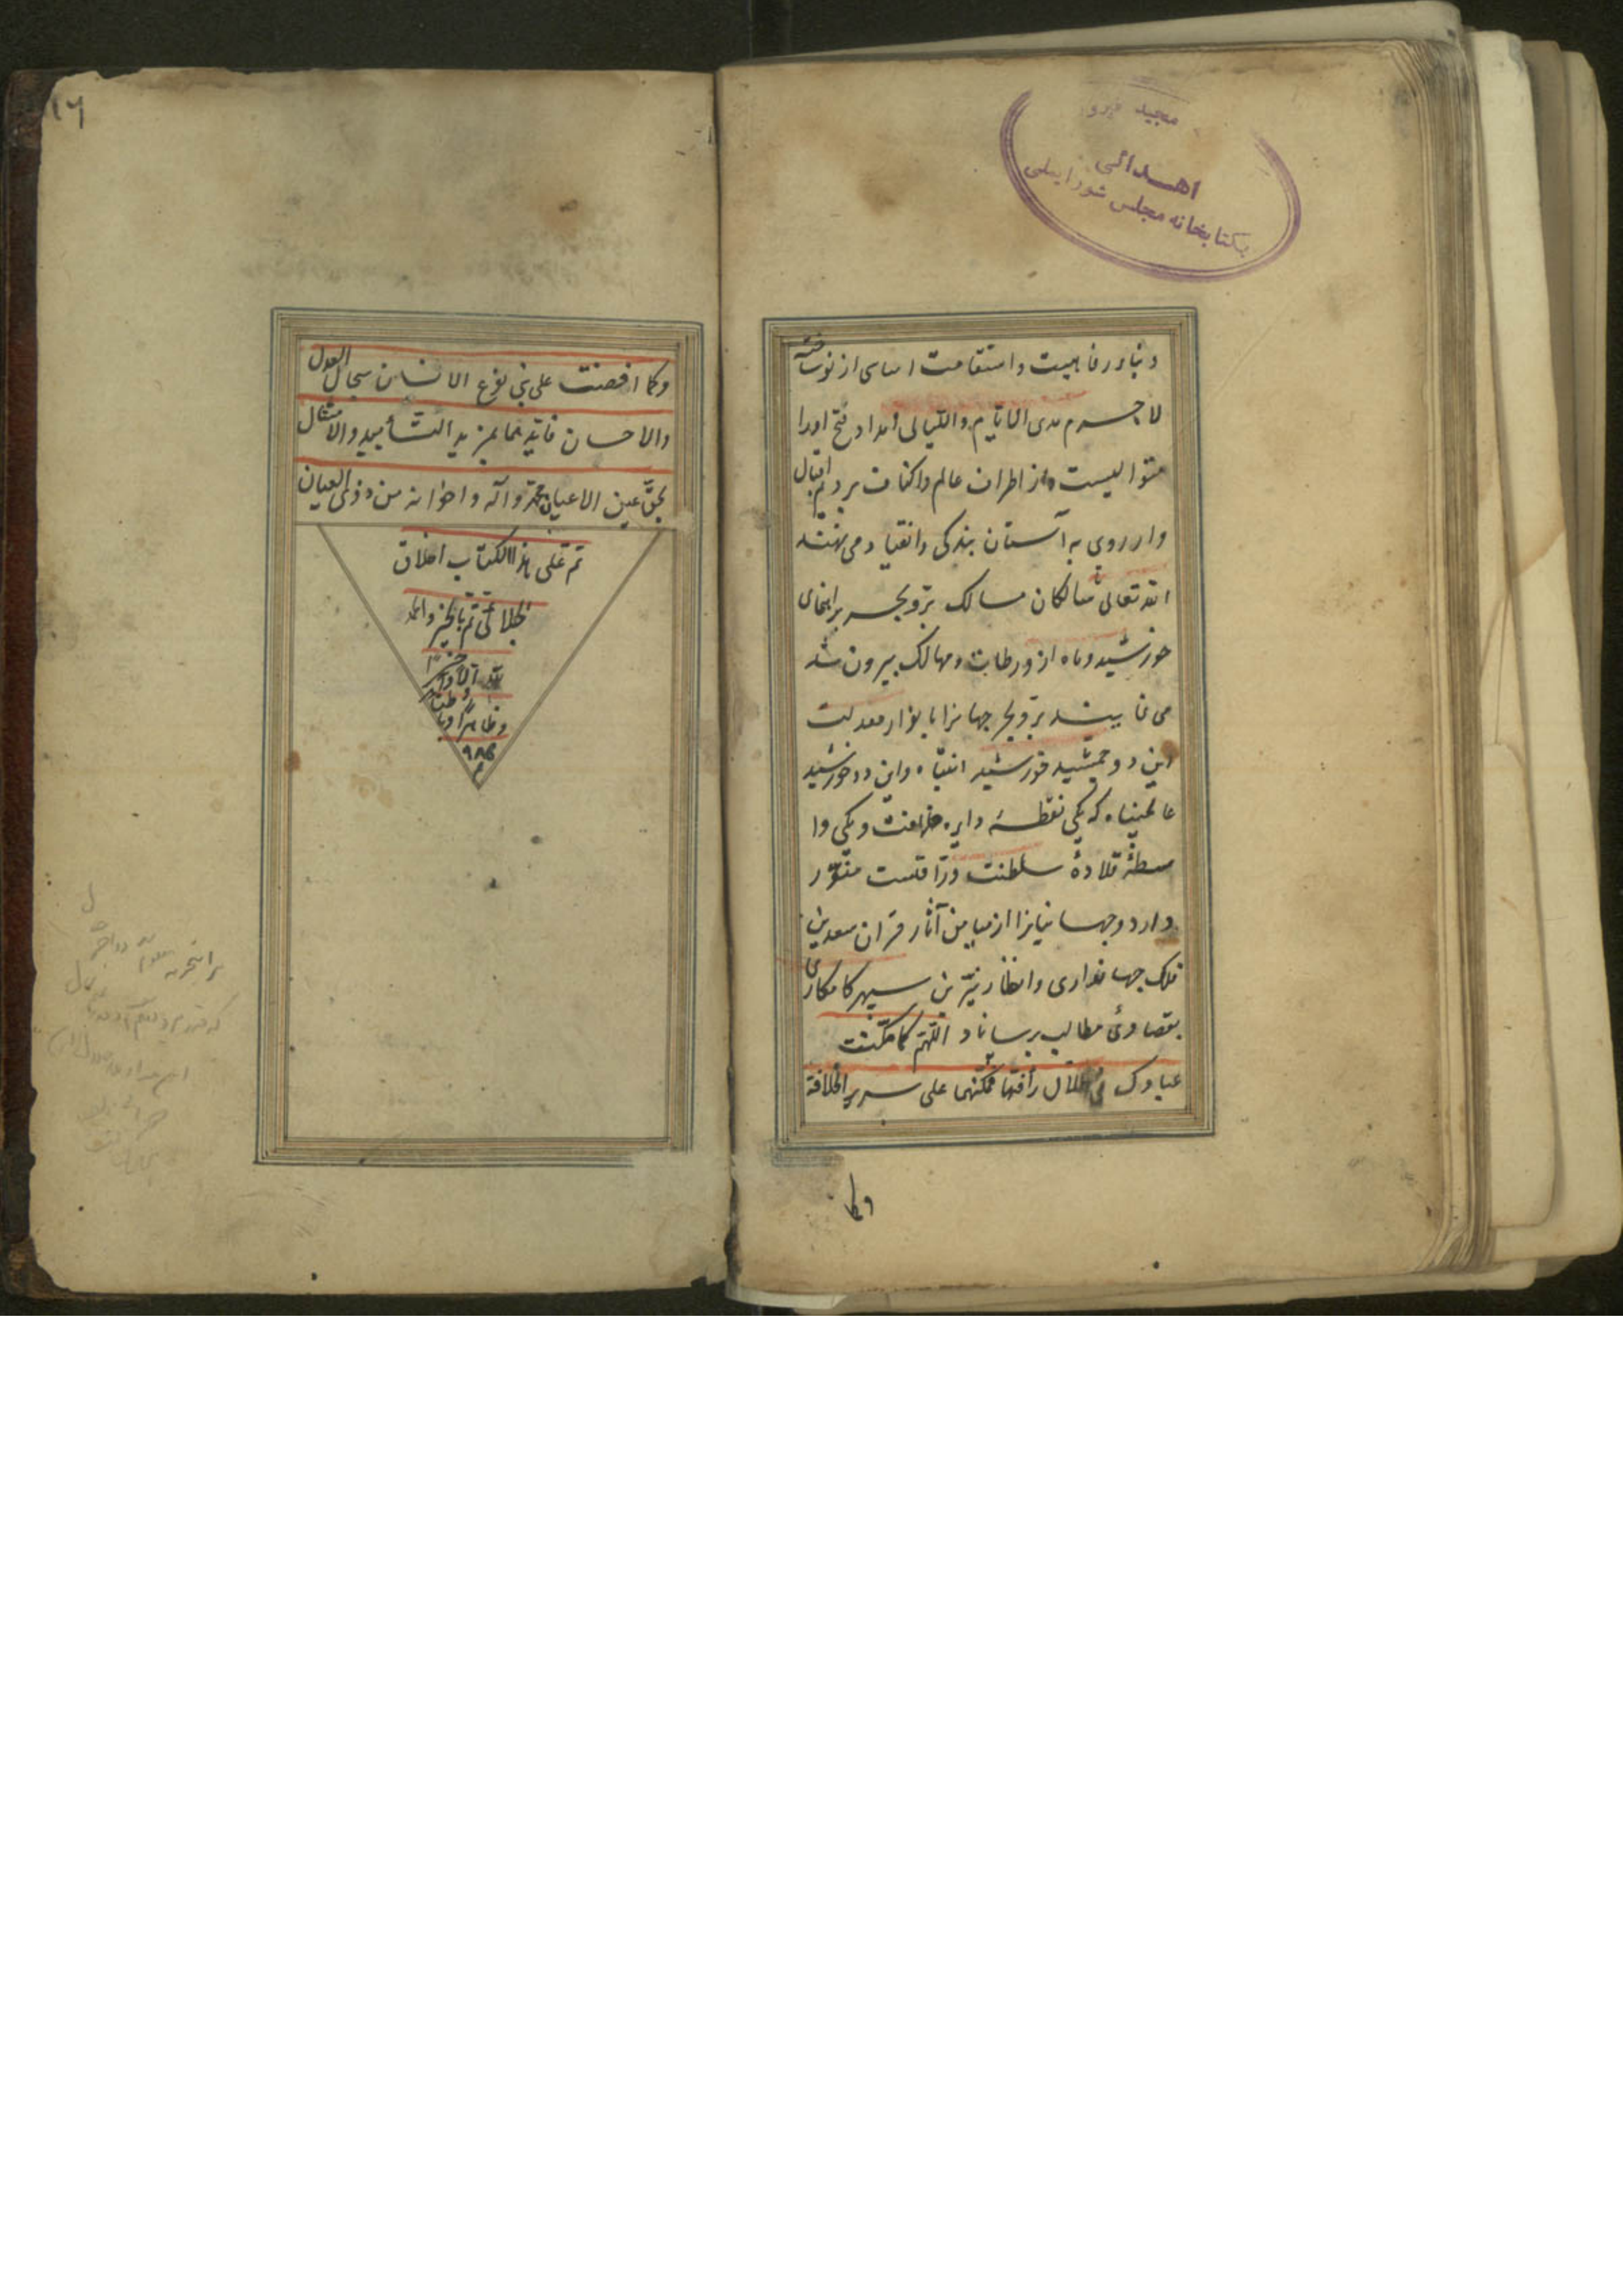 اهدائی
بکتابخانه مجلس شورایملی
دنیا در رفاهیت و استقامت اساسی از نو ساخته
لاجرم مدی الایام و اللیالی امداد فتح او را
متوالیست و از اطراف عالم و اکناف بر و یم اقبال
وار روی به آستان بندگی و انقیاد می نهند
الله تعالی سالکان مسالک بر و بحر براهنمای
خورشید و ماه از ورطات و مهالک بیرون شد
می نمایند بر و بحر جهانرا بانوار معدلت
این دو جمشید خورشید انتباه و این دو خورشید
عالمپناه که یکی نقطهٔ دایره خلافت و یکی وا
سطهٔ قلادهٔ سلطنت و رأفتست منوّر
دارد و جهانیانرا از میامن آثار قران سعدین
فلک جهانداری و انظار نیّرین سپهر کامکاری
بقصاوی مطالب برساناد اللهم کما مکّنت
عبادک فی ظلال رأفتهما فمکّنهما علی سریر الخلافة
وکما
۱۶
وکما افضت علی بنی نوع الانسان سجال العدل
والاحسان فایدهما بمزید التأیید والامتثال
بحق عین الاعیان محمد وآله واخوانه من ذوی العیان
تم علی هذا الکتاب اخلاق
جلالی تم بالخیر والحمد
لله اولا وآخرا
وظاهرا وباطنا
م